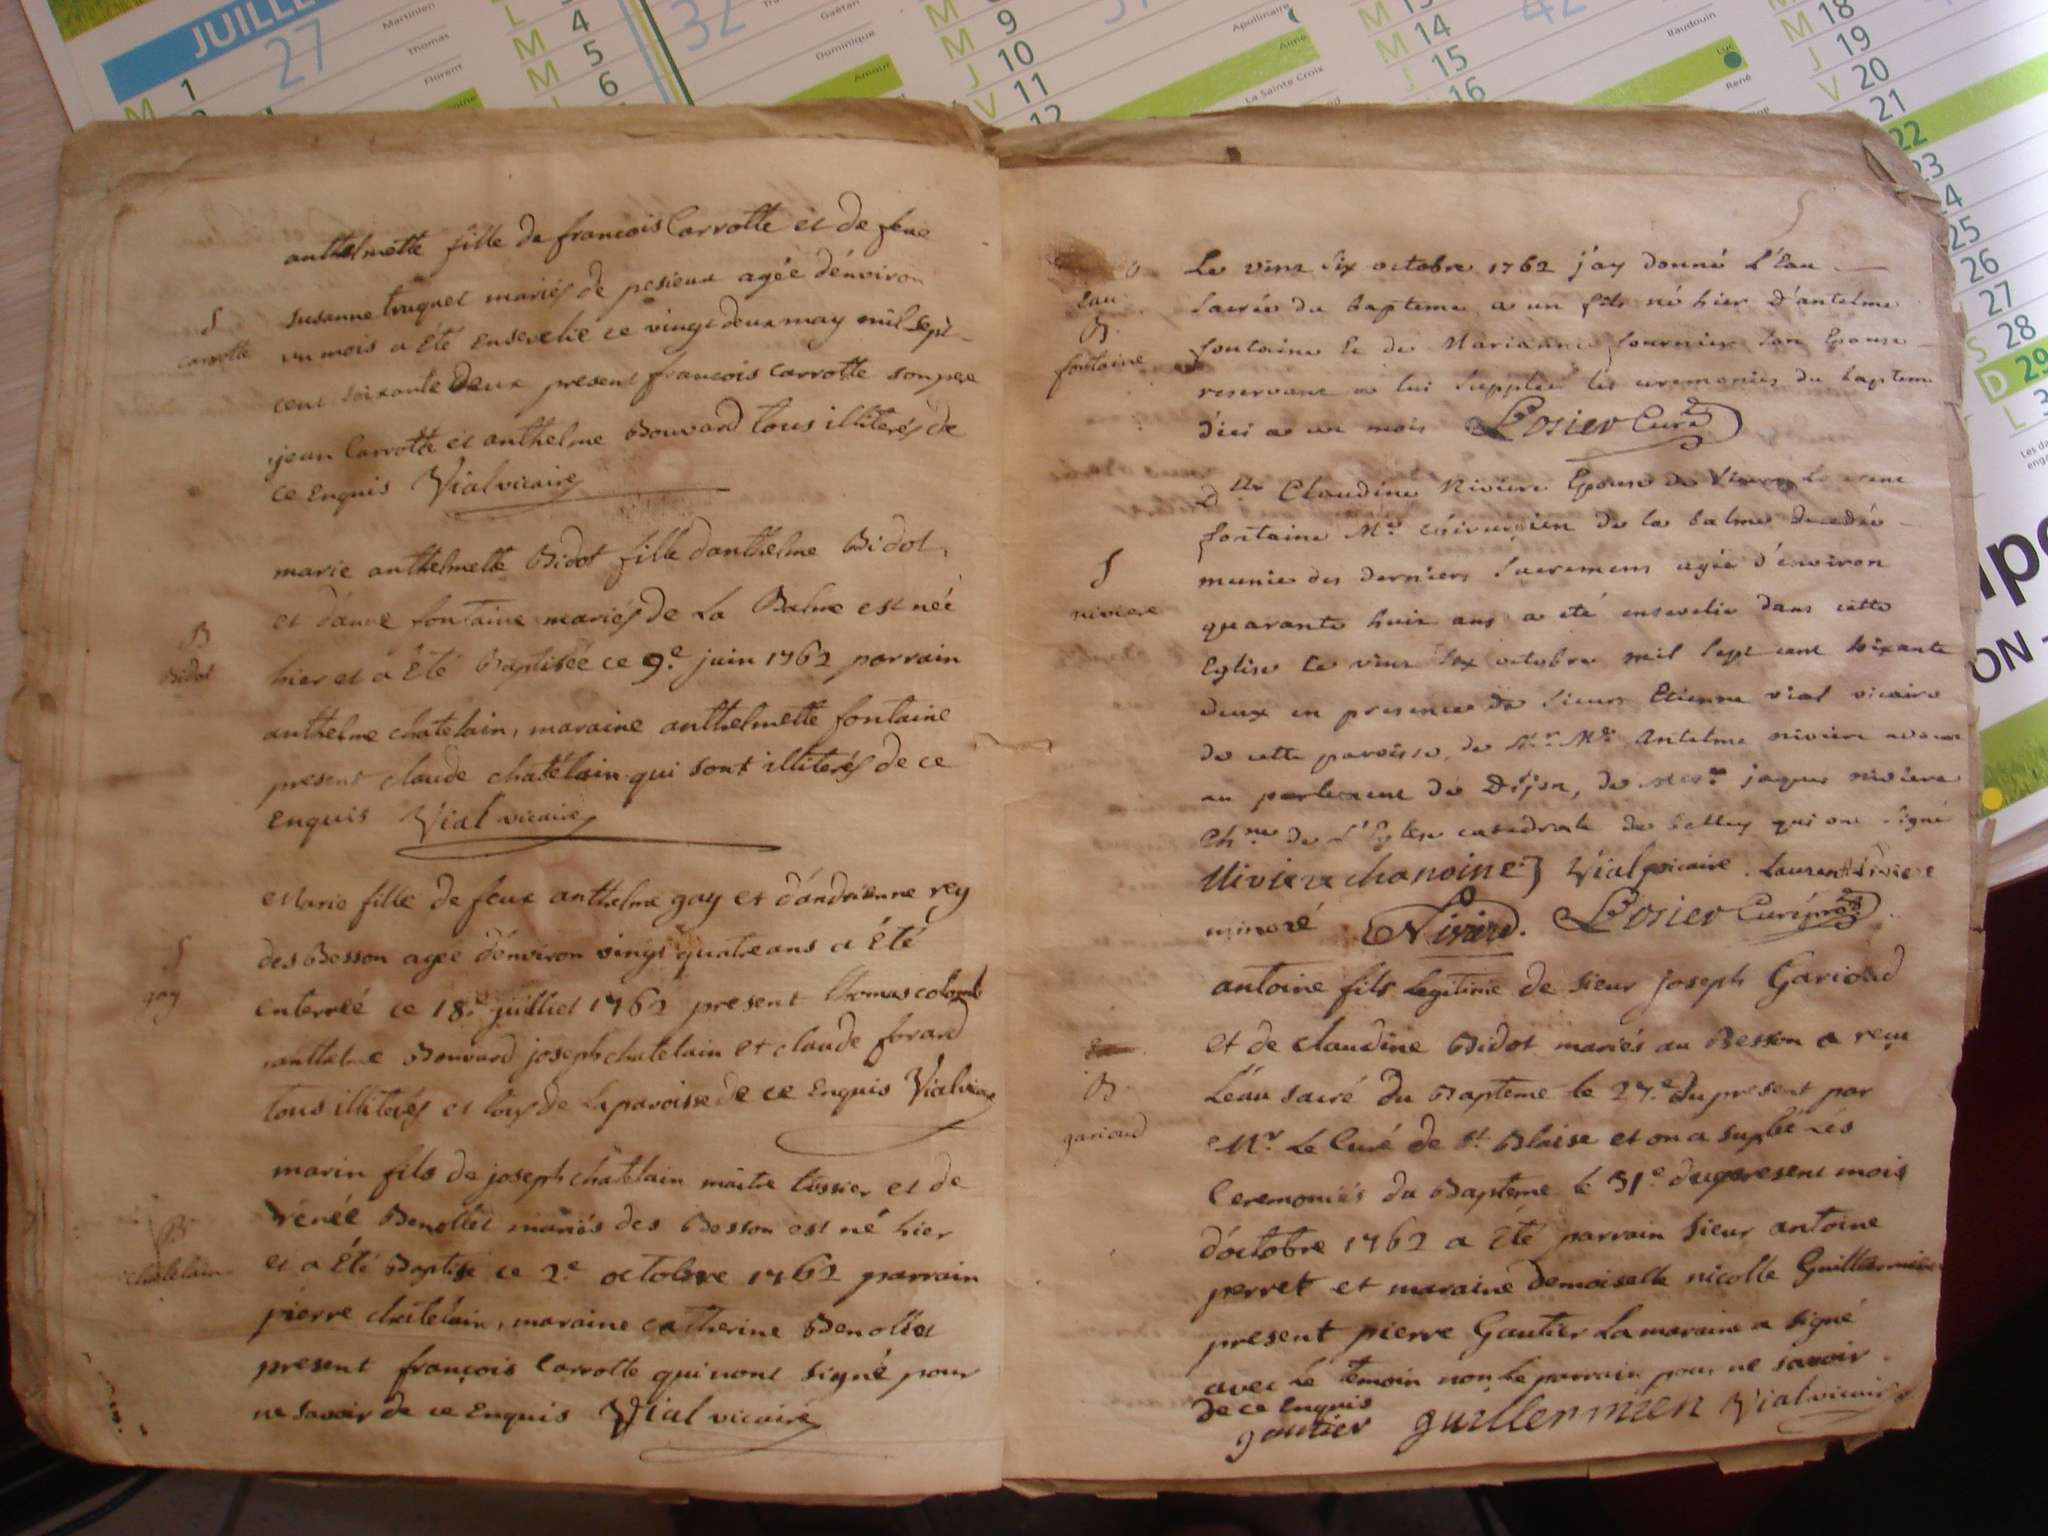 JUILLE
27
32
42
Martinien
Thomas
Florent
Gaétan
Dominique
Amour
Apollinaire
Aimé
La Sainte Croix
Baudouin
Luc
René
M 1
L 4
M 5
M 6
M 9
J 10
V 11
12
M 14
J 15
16
M 18
J 19
V 20
21
22
23
25
26
27
S 28
D 29
L
ON
anthelmette fille de francois Carrotte et de feue
susanne truquet mariés de pesieux agée d'énviron
S
carrotte
un mois a été ensevelie ce vingt deux may mil sept
cent soixante deux present francois carrotte son pere
jean Carrotte et anthelme Bouvard tous illiterés de
ce enquis Vial vicaire
marie anthelmette Bidot fille danthelme Bidot,
et d'anne fontaine mariés de La Balme est née
B
Bidot
hier et a été Baptisée ce 9e juin 1762 parrain
anthelme chatelain, maraine anthelmette fontaine
present claude chatelain qui sont illiterés de ce
enquis Vial vicaire
Marie fille de feux anthelme gay et d'andrienne rey
des Besson agee d'énviron vingt quatre ans a été
S
gay
enterreé ce 18e juilliet 1762 present thomas colomb
anthelme Bouvard joseph chatelain et claude forand
tous illiterés et tous de la paroisse de ce enquis Vial vicaire
marin fils de joseph chatelain maitre tissier et de
renée Benottet mariés des Besson est né hier
B
chatelain
et a été Baptisé ce 2e octobre 1762 parrain
pierre chatelain, maraine catherine Benottet
present françois Carrotte qui nont signé pour
ne savoir de ce enquis Vial vicaire
Le vint six octobre 1762 j'ay donné L'Eau
Eau
B
fontaine
sacrée du bapteme a un fils né hier d'antelme
fontaine et de Marianne fournier son Epouse
reservant a lui suppleer les ceremonies du bapteme
d'ici a un mois Losier Curé
Dlle Claudine Niviere Epouse de
fontaine Me chirurgien de la balme
S
niviere
munie des derniers sacremens agée d'environ
quarante huit ans a été ensevelie dans cette
Eglise Le vint six octobre mil sept cent soixante
deux en presence de sieurs Etienne vial vicaire
de cette paroisse, de Sr Me Antelme niviere avocat
au parlement de Dijon, de Messe jaques niviere
Chne de L'Eglise catedrale de belley qui ont signé
Niviere chanoine Vial vicaire Laurent Niviere
minoré Niviere. Losier Curé
antoine fils Legitime de sieur joseph Garioud
et de claudine Bidot mariés au Besson a reçu
B
garioud
L'éau sacré du Bapteme le 27e du present par
Mr Le Curé de St Blaise et on a suplée Les
Ceremoniés du Bapteme le 31e du present mois
d'octobre 1762 a été parrain sieur antoine
perret et maraine demoiselle nicolle Guillermin
present pierre Gautier La maraine a signé
avec Le temoin non Le parrain pour ne savoir
de ce Enquis
gautier guillermien Vial vicaire